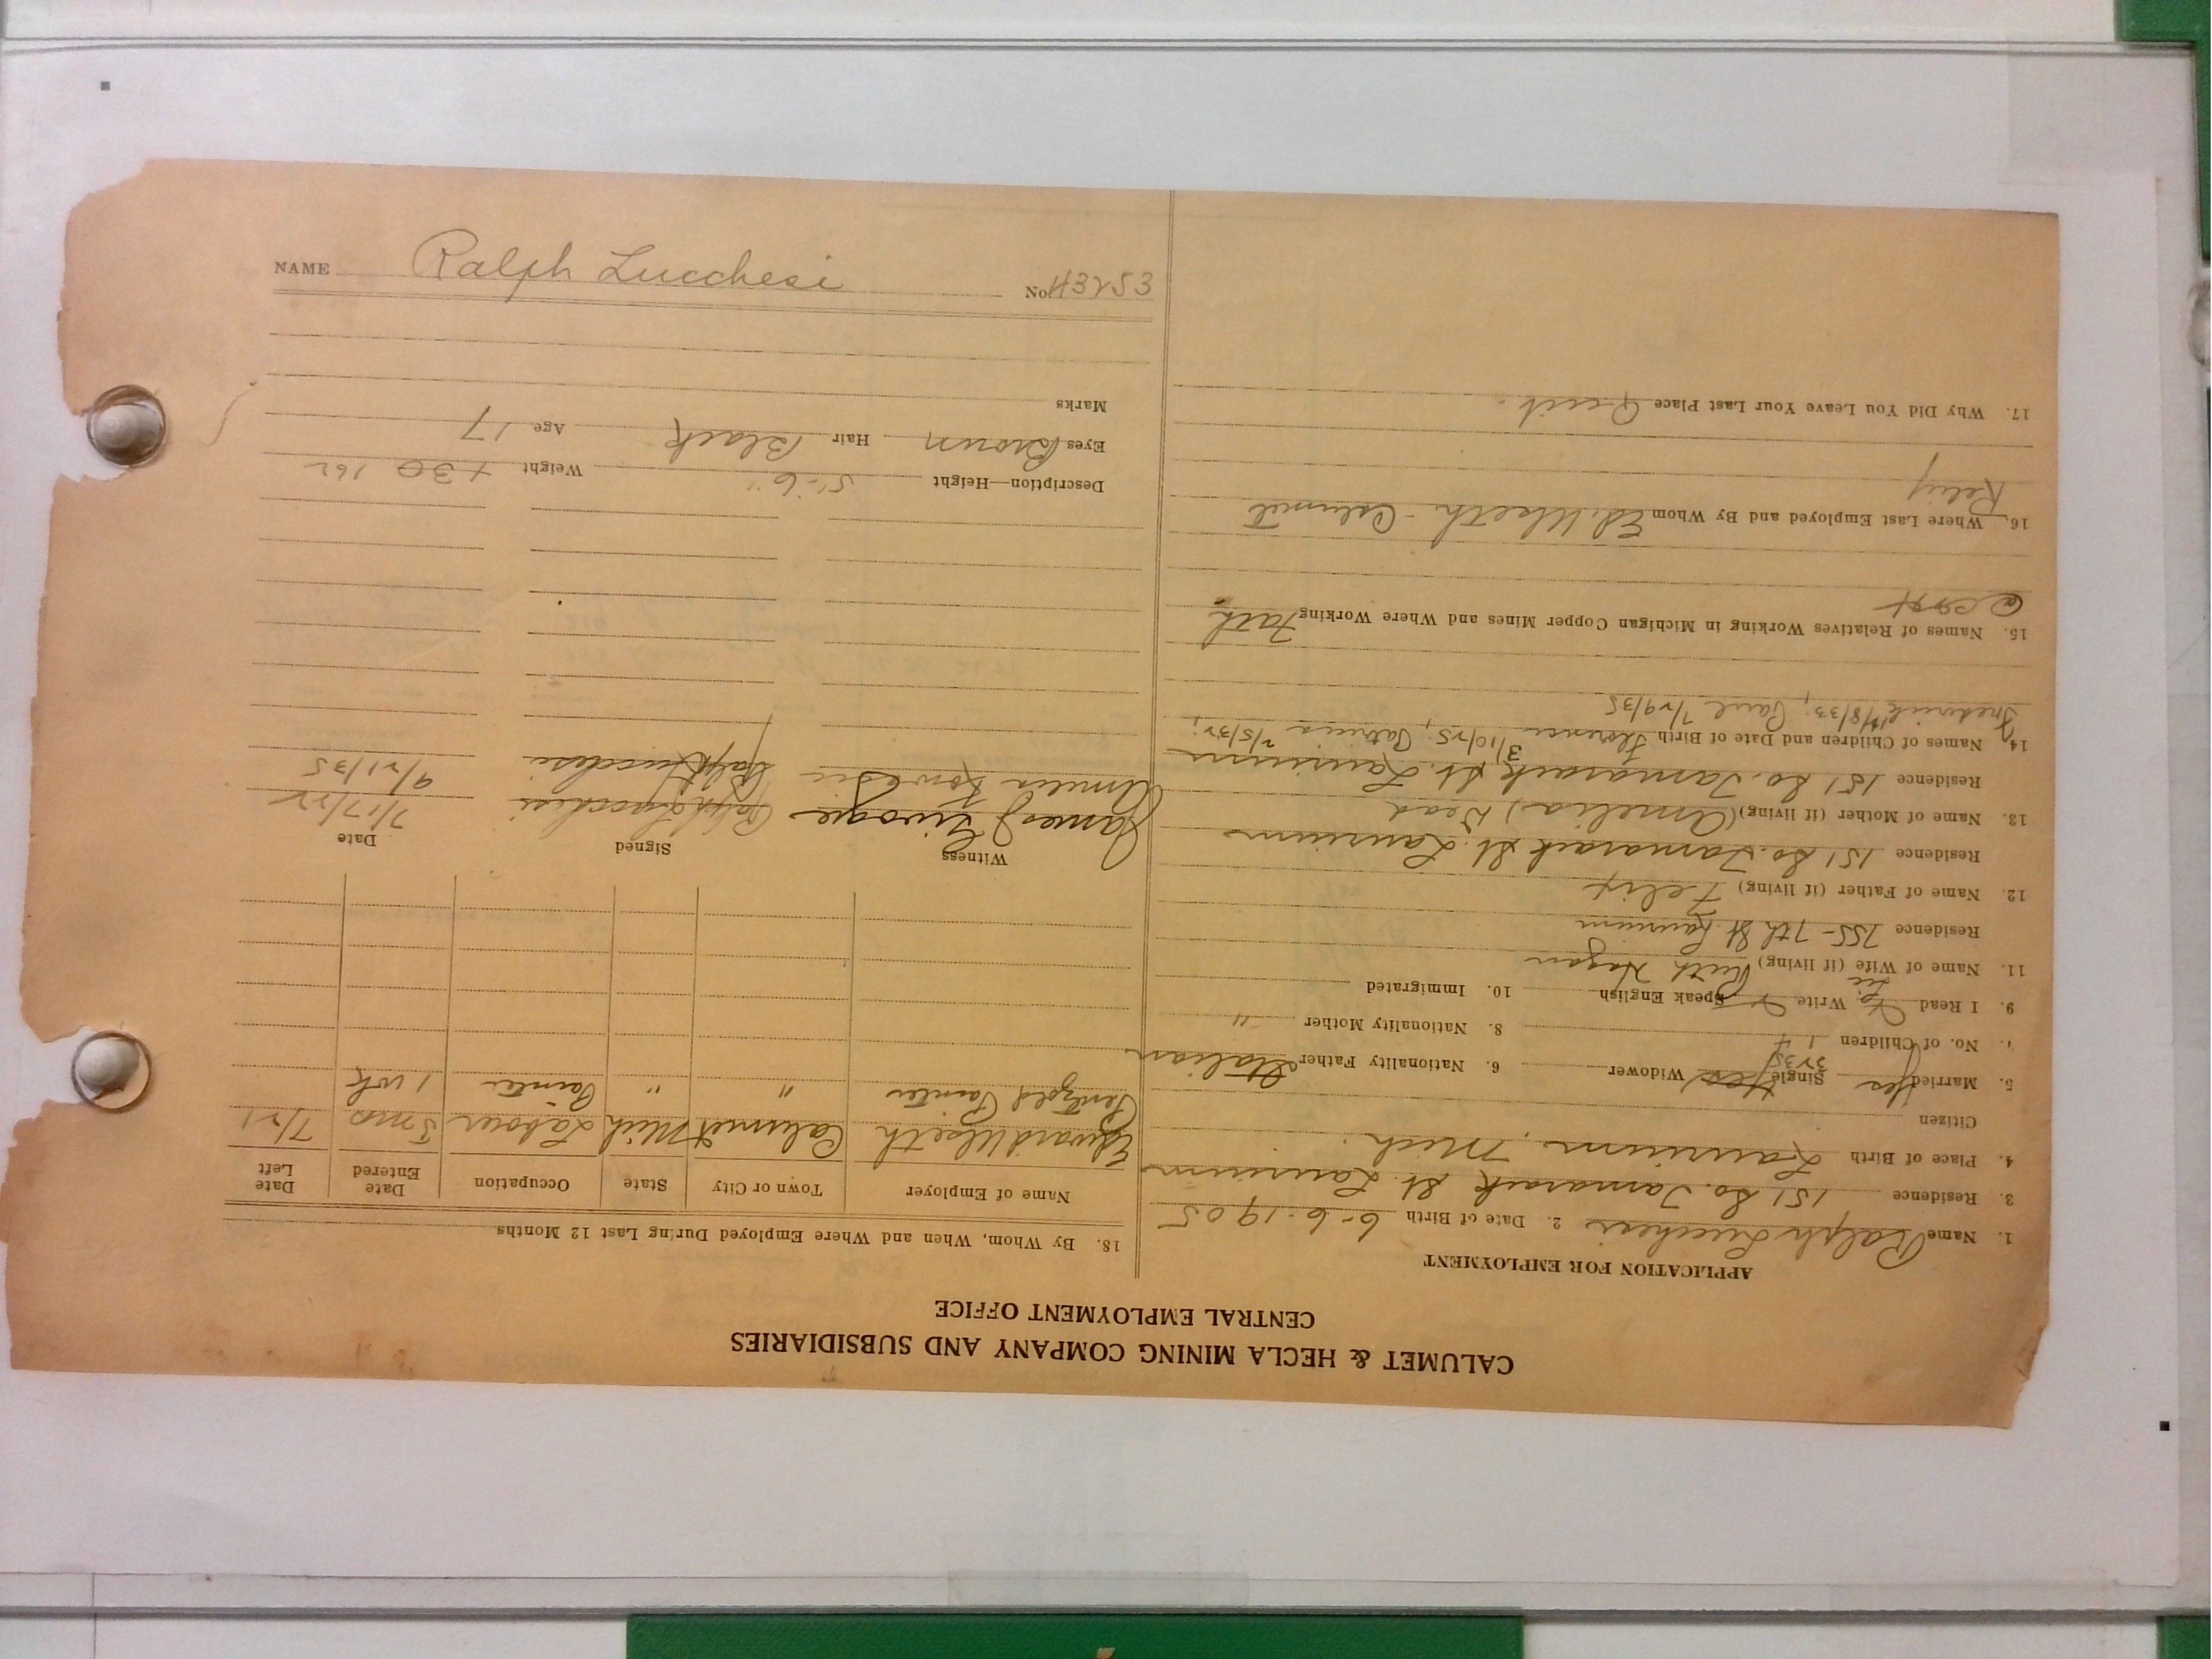 NAME Ralph Lucchesi No. 43253
CALUMET & HECLA MINING COMPANY AND SUBSIDIARIES
CENTRAL EMPLOYMENT OFFICE
APPLICATION FOR EMPLOYMENT
1. Name Ralph Lucchesi 2. Date of Birth 6-6-1905
3. Residence 151 So. Tamarack St. Laurium
4. Place of Birth Laurium, Mich.
Citizen
5. Married Yes Single Widower 6. Nationality Father Italian
7. No. of Children 4 8. Nationality Mother "
9. I Read Write Speak English 10. Immigrated
11. Name of Wife (if living) Ruth Hagan
Residence 755-7th St. Laurium
12. Name of Father (if living) Felix
Residence 151 So. Tamarack St. Laurium
13. Name of Mother (if living) (Amelia) Dead
Residence 151 So. Tamarack St. Laurium
14. Names of Children and Date of Birth Florence 3/10/25, Patricia 2/5/32,
Frederick /8/33, Carol 7/29/35
15. Names of Relatives Working in Michigan Copper Mines and Where Working Fath
@ C&H
16. Where Last Employed and By Whom Ed. Ulseth - Calumet
Relief
17. Why Did You Leave Your Last Place Quit.
18. By Whom, When and Where Employed During Last 12 Months
Name of Employer Town or City State Occupation Date Entered Date Left
Edward Ulseth Calumet Mich Labour 3 mos 7/21
Painter " " Painter 1 wk
Witness Signed Date
James Ralph Lucchesi 7/17/22
Ralph Lucchesi 9/21/35
Description—Height 5'-6" Weight 130 162
Eyes Brown Hair Black Age 17
Marks